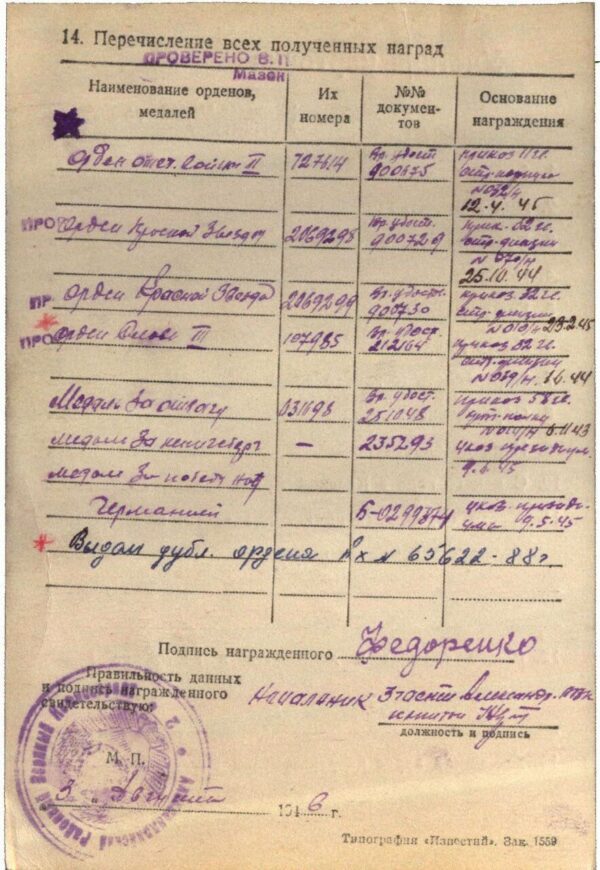 14. Перечисление всех полученных наград
ПРОВЕРЕНО В.П.
Мазок
Наименование орденов, медалей
Их номера
№№ документов
Основание награждения
Орден отеч. войны II 727614 Вр. удост. 900675 приказ 11 гв.
№ 032/н
12.4.45
ПРО
Орден Красной Звезды 2069298 Вр. удост. 900729 прик. 82 гв.
№ 070/н
25.10.44
ПР.
Орден Красной Звезда 2069299 Вр. удост. 900730 приказ 82 гв.
№ 010/н 23.2.45
ПРО
Орден Славы III 107985 Вр. удост. 212164 приказ 82 гв.
№ 039/н. 1.6.44
Медаль За отвагу 031698 Вр. удост. 251048 приказ 58 гв.
6.11.43
медаль За кенигсберг — 235293 указ президиум.
9.6.45
медаль За победу над
Германией Б-0299374 указ. президи-
ума 9.5.45
Выдан дубл. ордена № 65622-88г
Подпись награжденного Федоренко
Правильность данных
и подпись награжденного
свидетельствую:
Начальник 3 части
должность и подпись
М. П.
3 " августа 1946 г.
Типография «Известий». Зак. 1559